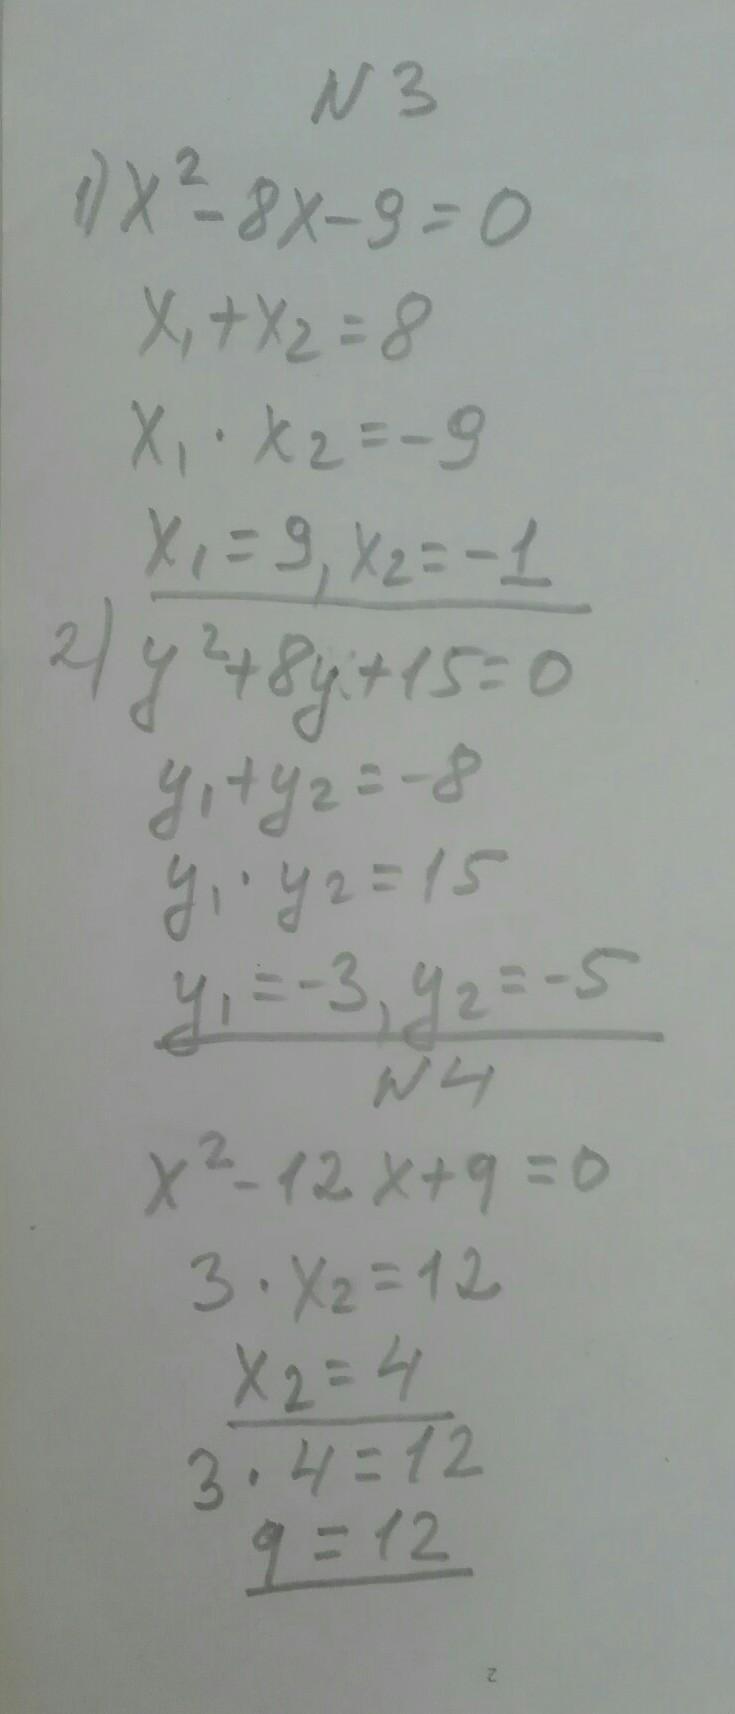 N 3
1) x² - 8x - 9 = 0
x₁ + x₂ = 8
x₁ · x₂ = -9
x₁ = 9, x₂ = -1
2) y² + 8y + 15 = 0
y₁ + y₂ = -8
y₁ · y₂ = 15
y₁ = -3, y₂ = -5
N 4
x² - 12x + q = 0
3 · x₂ = 12
x₂ = 4
3 · 4 = 12
q = 12
2